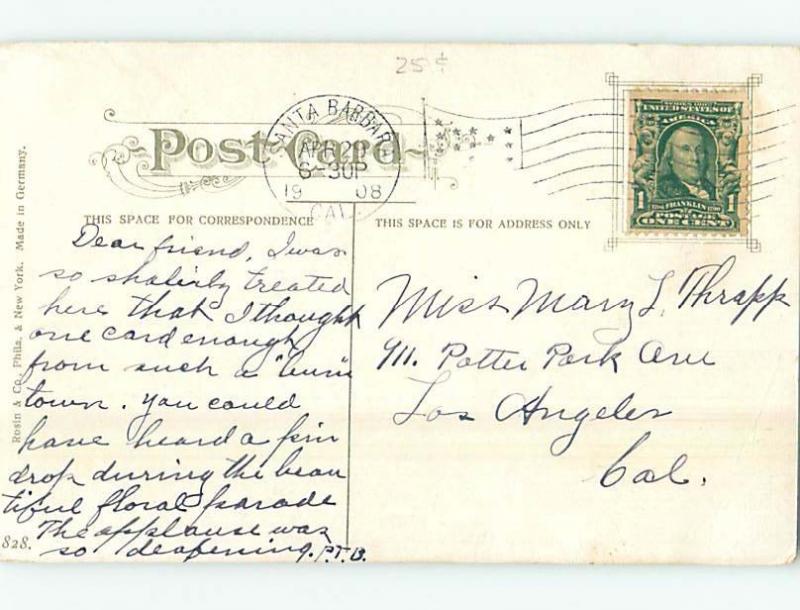 25¢
Post Card
SANTA BARBARA
APR 20
6-30P
1908
CAL.
SERIES 1902
UNITED STATES OF
AMERICA
1 FRANKLIN 1
ONE CENT
THIS SPACE FOR CORRESPONDENCE
THIS SPACE IS FOR ADDRESS ONLY
Rosin & Co., Phila. & New York. Made in Germany.
Dear friend, I was
so shabily treated
here that I thought
one card enough
from such a "bum"
town. You could
have heard a pin
drop during the beau
tiful floral parade
The applause was
so deafening. P.T.B.
828.
Miss Mary L. Thrapp
911. Potter Park Ave
Los Angeles
Cal.